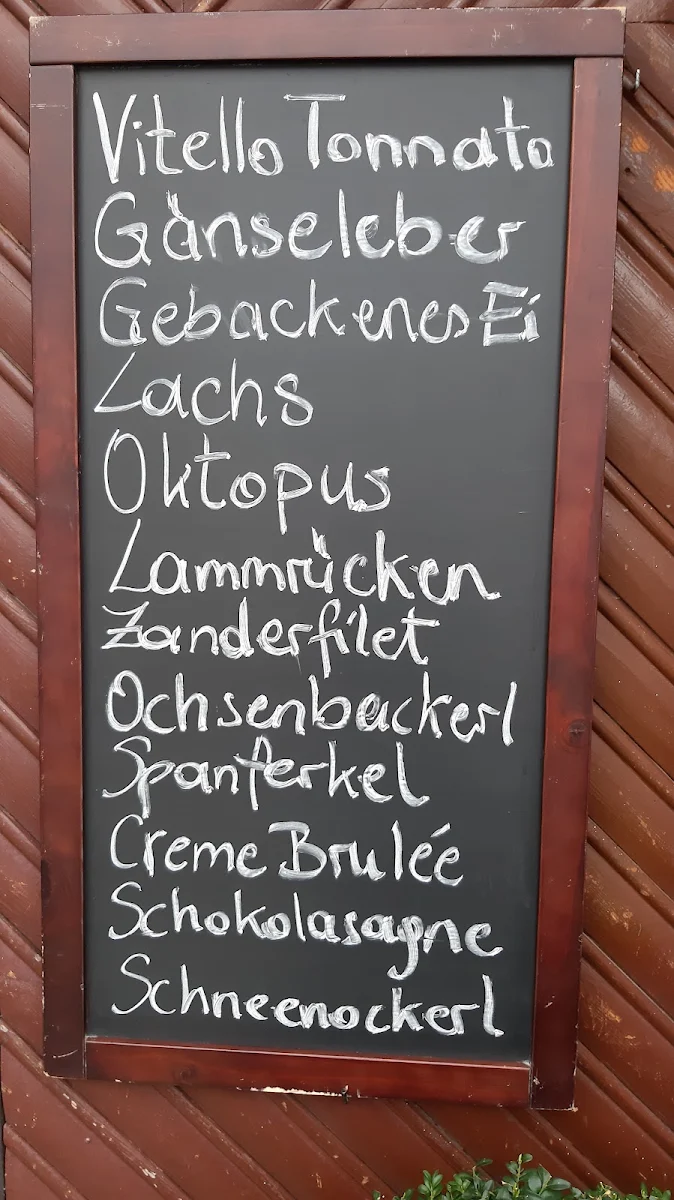 Vitello Tonnato
Gänseleber
Gebackenes Ei
Lachs
Oktopus
Lammrücken
Zanderfilet
Ochsenbackerl
Spanferkel
Creme Brulée
Schokolasagne
Schneenockerl